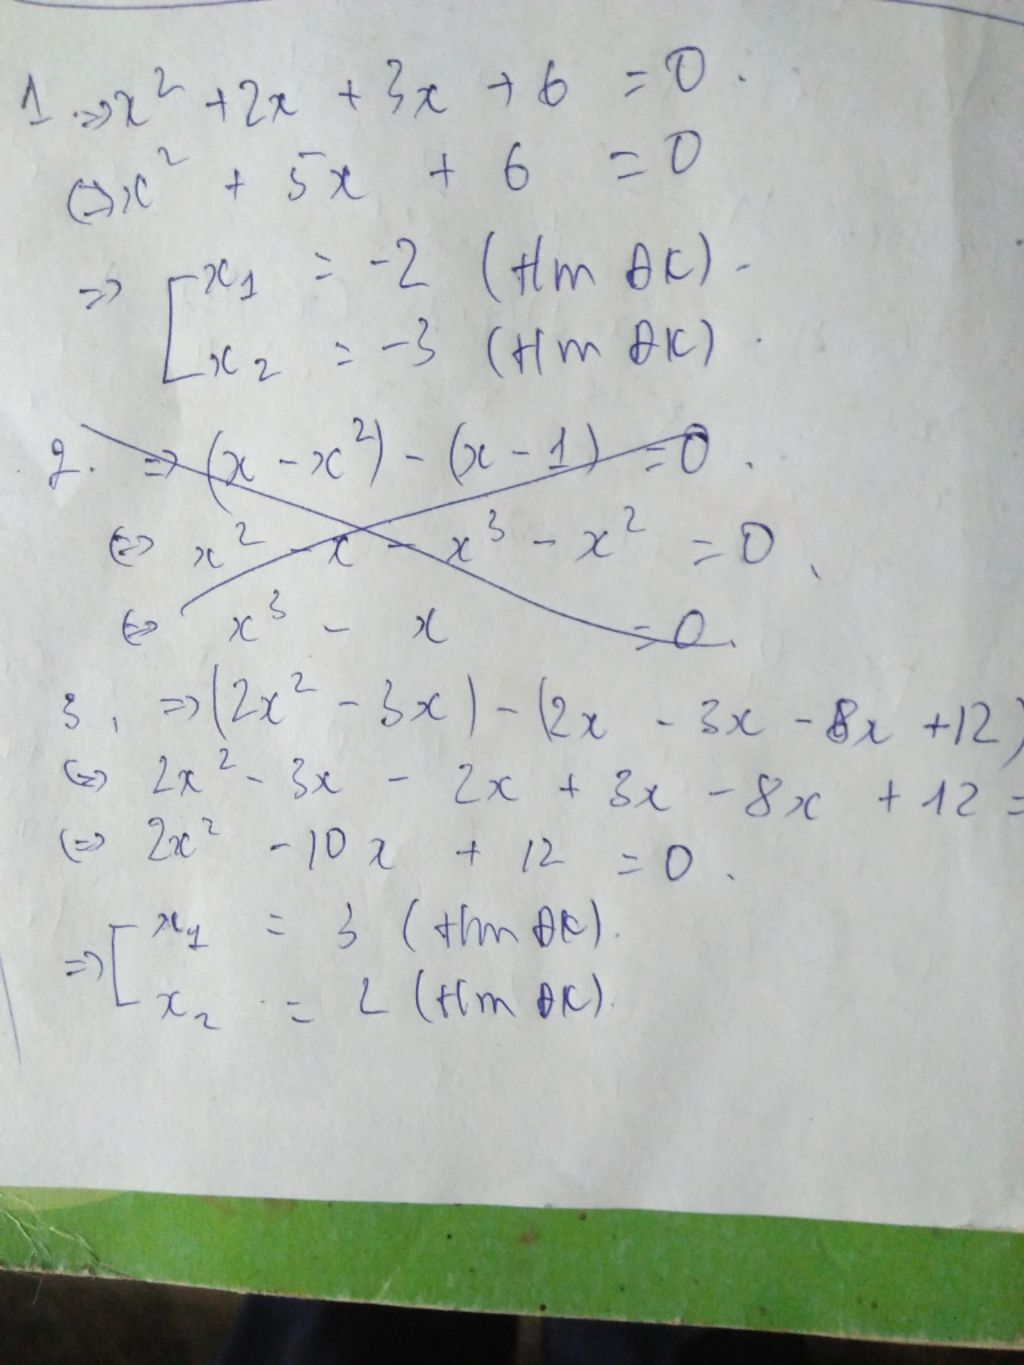 1. => x² + 2x + 3x + 6 = 0.
<=> x² + 5x + 6 = 0
=> [ x₁ = -2 (tlm ĐK).
x₂ = -3 (tlm ĐK).
2. => (x - x²) - (x - 1) = 0.
<=> x² - x - x³ - x² = 0.
<=> x³ - x = 0.
3. => (2x² - 3x) - (2x - 3x - 8x + 12)
<=> 2x² - 3x - 2x + 3x - 8x + 12 =
<=> 2x² - 10x + 12 = 0.
=> [ x₁ = 3 (tlm ĐK).
x₂ = 2 (tlm ĐK).